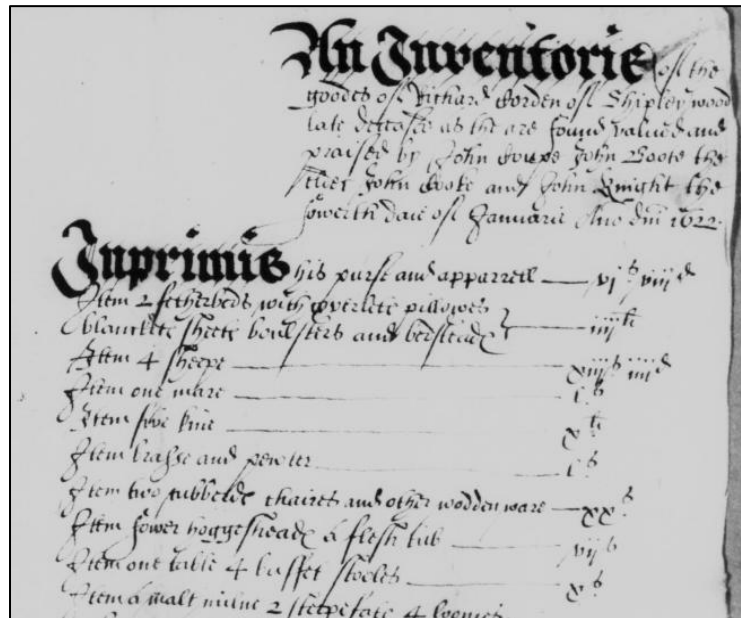 An Inventorie of the
goodes of Richard Gorden of Shipley wood
late deceased as the are found valued and
praised by John John Boote the
elder John Cooke and John Knight the
fowerth daie of Januarie Ano dni 1622.
Inprimis his purse and apparrell — vjs viijd
Item 2 fetherbeds with coverlets pillowes
blanckets sheets boulsters and bedsteads — iiijli
Item 4 sheepe — xiijs iiijd
Item one mare — ls
Item five kine — xli
Item brasse and pewter — ls
Item two chaires and other wodden ware — xxs
Item fower hoggesheads a flesh tub — vijs
Item one table 4 buffet stooles — xs
Item a malt milne 2 4 loomes